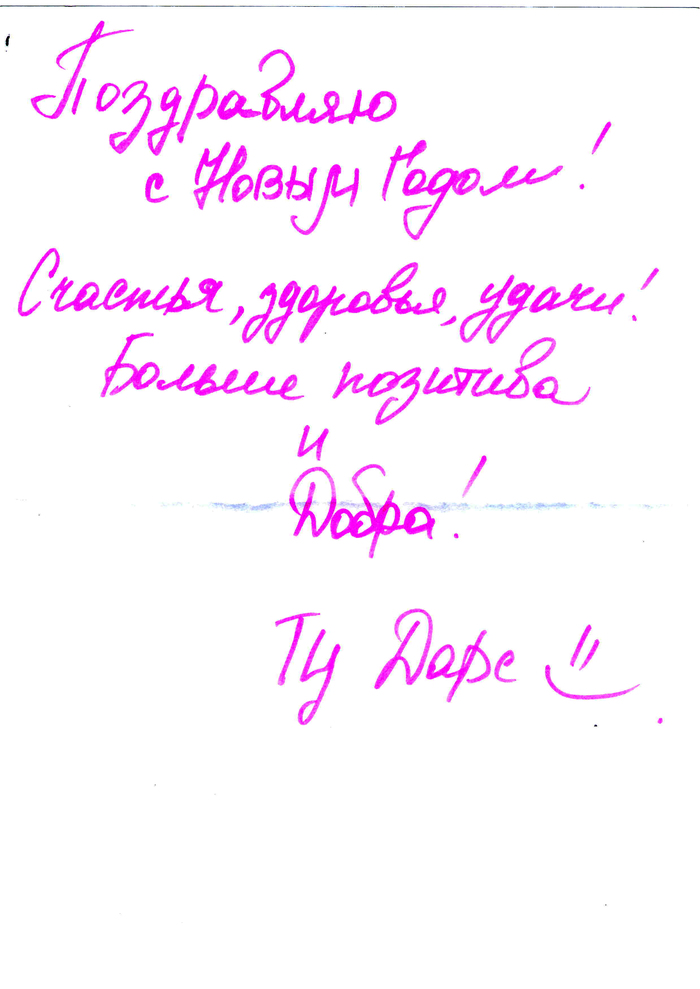 Поздравляю
с Новым Годом!
Счастья, здоровья, удачи!
Больше позитива
и
Добра!
ТЦ Дарс